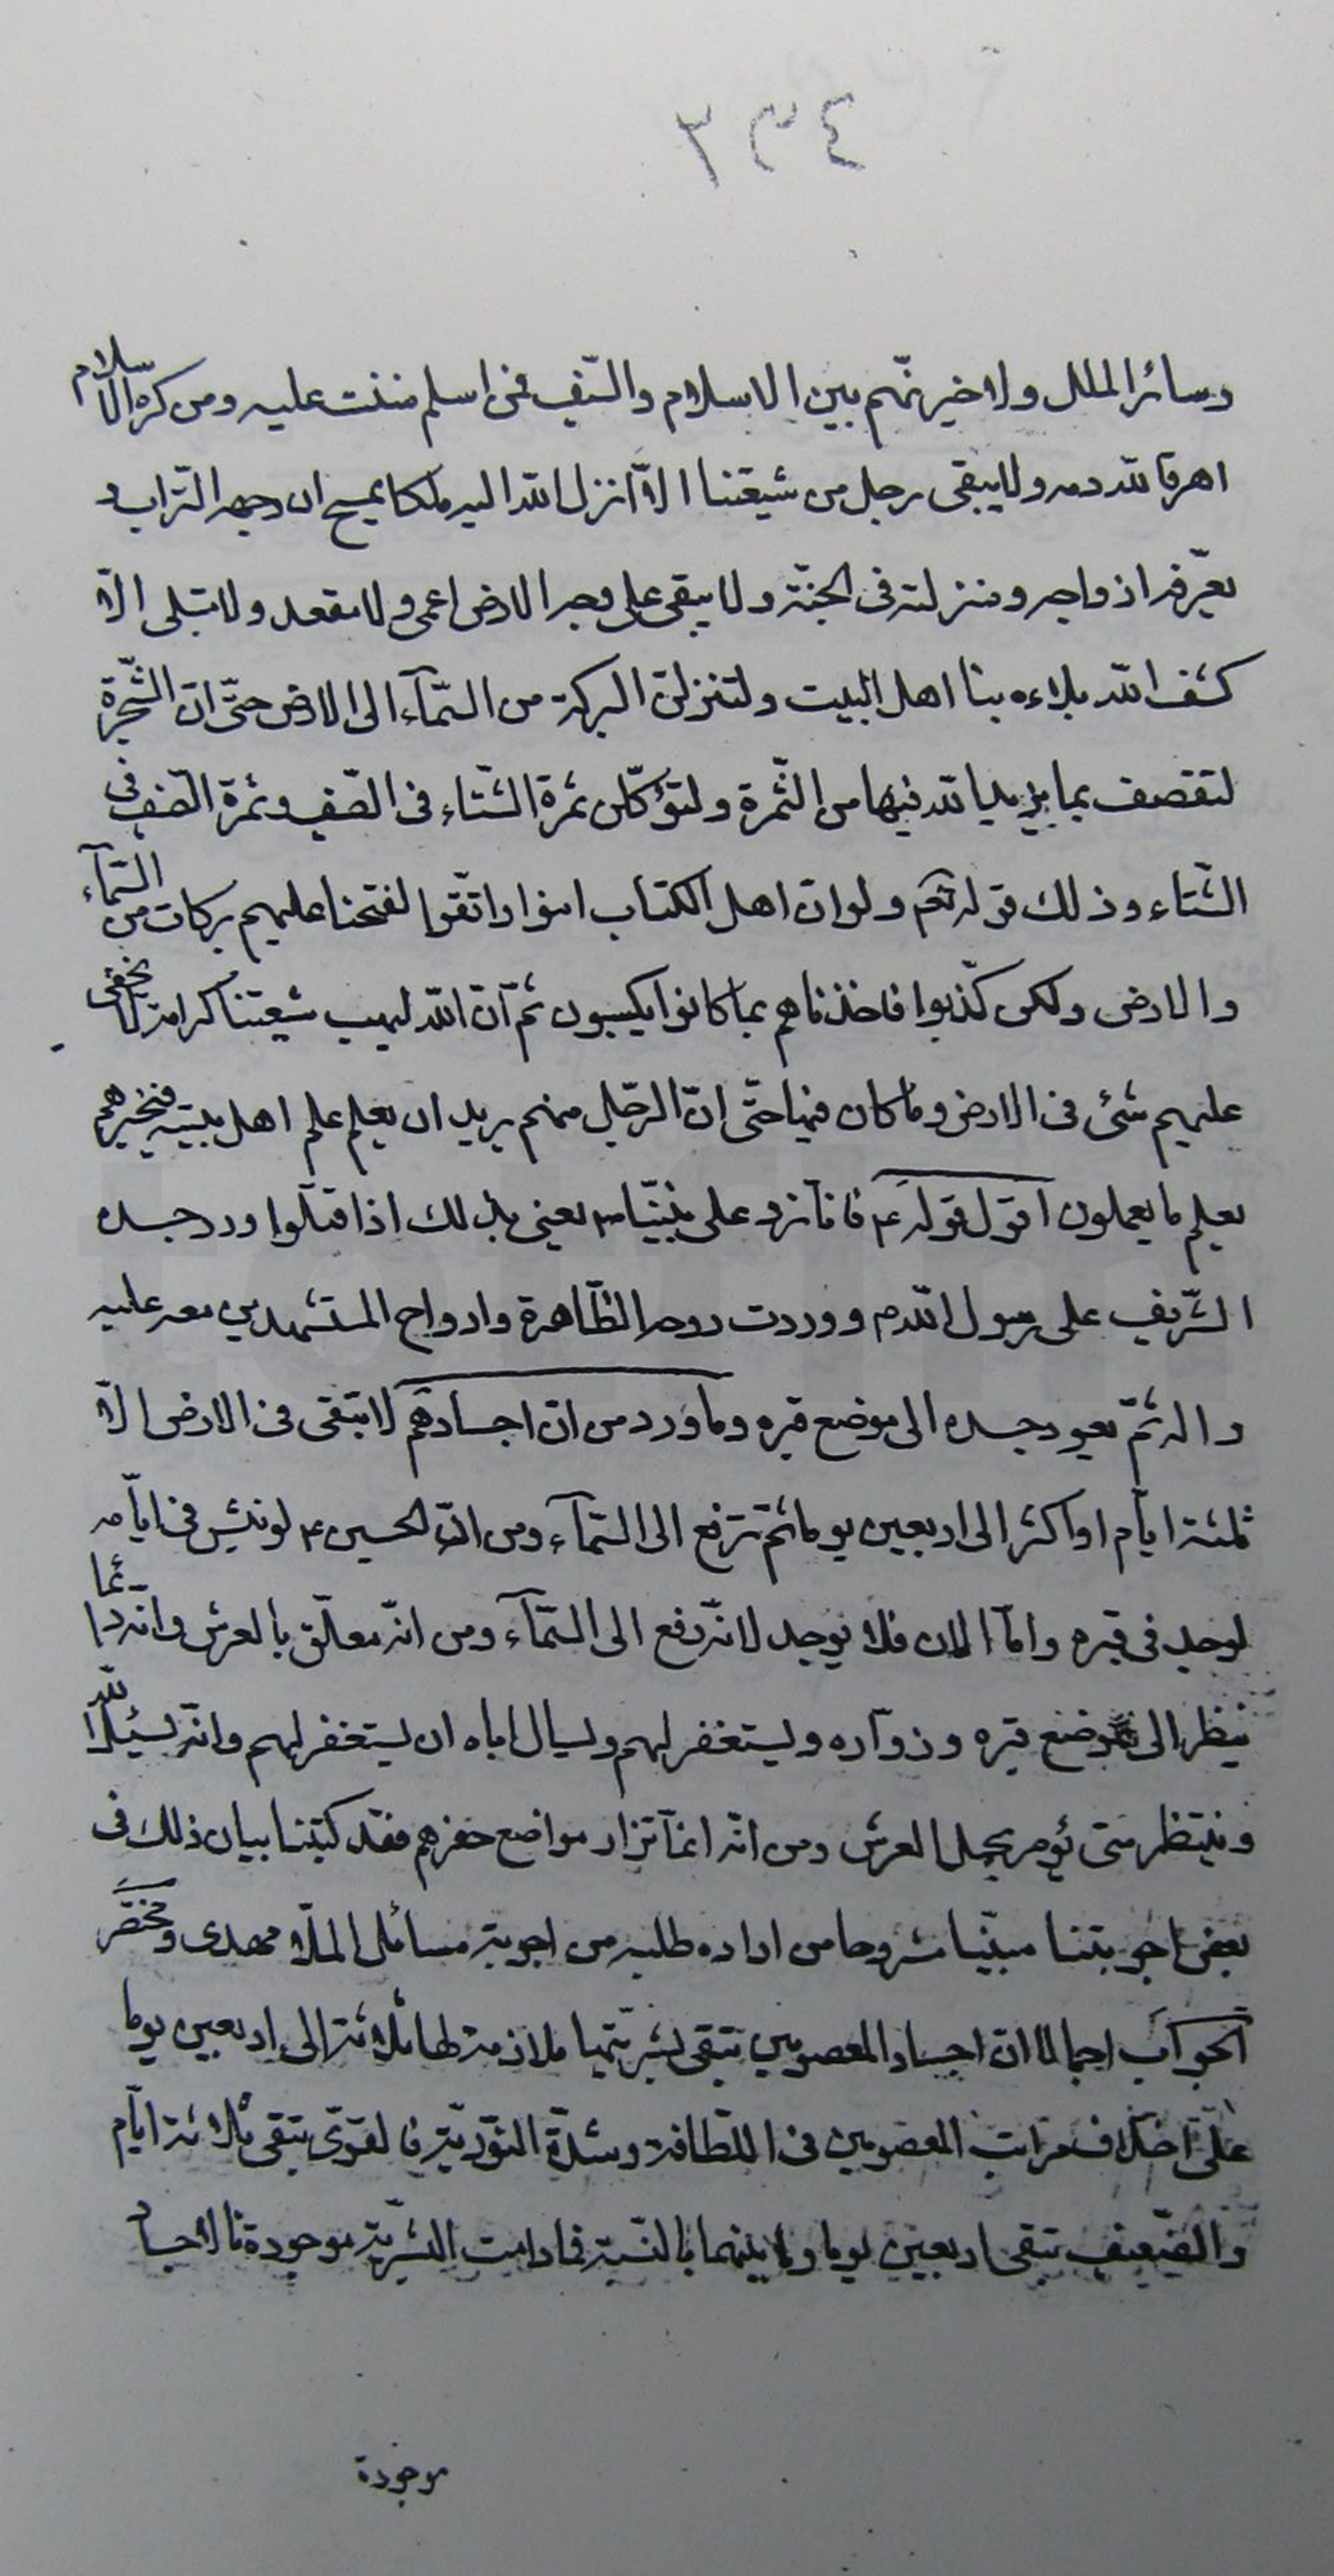 ٣٣٤
وسائر الملل ولاخيرنّهم بين الاسلام والسّيف فمن اسلم مننت عليه ومن كره الاسلام
اهرق الله دمه ولا يبقى رجل من شيعتنا الّا انزل الله اليه ملكا يمسح ان وجهه التراب و
يعرّفه ازواجه ومنزلته فى الجنّة ولا يبقى على وجه الارض اعمى ولا مقعد ولا مبتلى الّا
كشف الله بلاءه بنا اهل البيت ولتنزلنّ البركة من السّمآء الى الارض حتّى انّ الشّجرة
لتقصف بما يزيد الله فيها من الثّمرة ولتؤكلن ثمرة الشّتاء فى الصّيف وثمرة الصّيف فى
الشّتاء وذلك قوله تعم ولو انّ اهل الكتاب امنوا واتّقوا لفتحنا عليهم بركات من السّمآء
والارض ولكن كذّبوا فاخذناهم بما كانوا يكسبون ثمّ انّ الله ليهب شيعتنا كرامة لا يخفى
عليهم شئ فى الارض وما كان فيها حتّى انّ الرّجل منهم يريد ان يعلم علم اهل بيته فيخبرهم
بعلم ما يعملون اقول قوله ع فانا نرد على نبيّنا ص يعنى بذلك اذا قتلوا ورد جسده
الشّريف على رسول الله ص ووردت روحه الطّاهرة وارواح المستشهدين معه عليه
واله ثمّ يعود جسده الى موضع قبره وما ورد من انّ اجسادهم لا تبقى فى الارض الّا
ثلثة ايّام او اكثر الى اربعين يوما ثمّ ترفع الى السّمآء ومن انّ الحسين ع لو نبش فى ايّامه
لوجد فى قبره وامّا الان فلا يوجد لانّه رفع الى السّمآء ومن انّه معلّق بالعرش وانّه دائما
ينظر الى موضع قبره وزوّاره ويستغفر لهم ويسال اباه ان يستغفر لهم وانّه ليسئل الله
وينتظر متى يؤمر بحمل العرش ومن انّه انمّا تزار مواضع حفرهم فقد كتبنا بيان ذلك فى
بعض اجوبتنا مبيّنا مشروحا من اراده طلبه من اجوبة مسائل الملّا مهدى ومختصر
الجواب اجمالا ان اجساد المعصومين تبقى بشريّتها ملازمة لها ثلاثة الى اربعين يوما
على اختلاف مراتب المعصومين فى اللّطافة وشدّة النّوريّة فالقوىّ يبقى ثلاثة ايّام
والضّعيف تبقى اربعين يوما وما بينهما بالنّسبة فما دامت البشريّة موجودة فالاجساد
موجودة